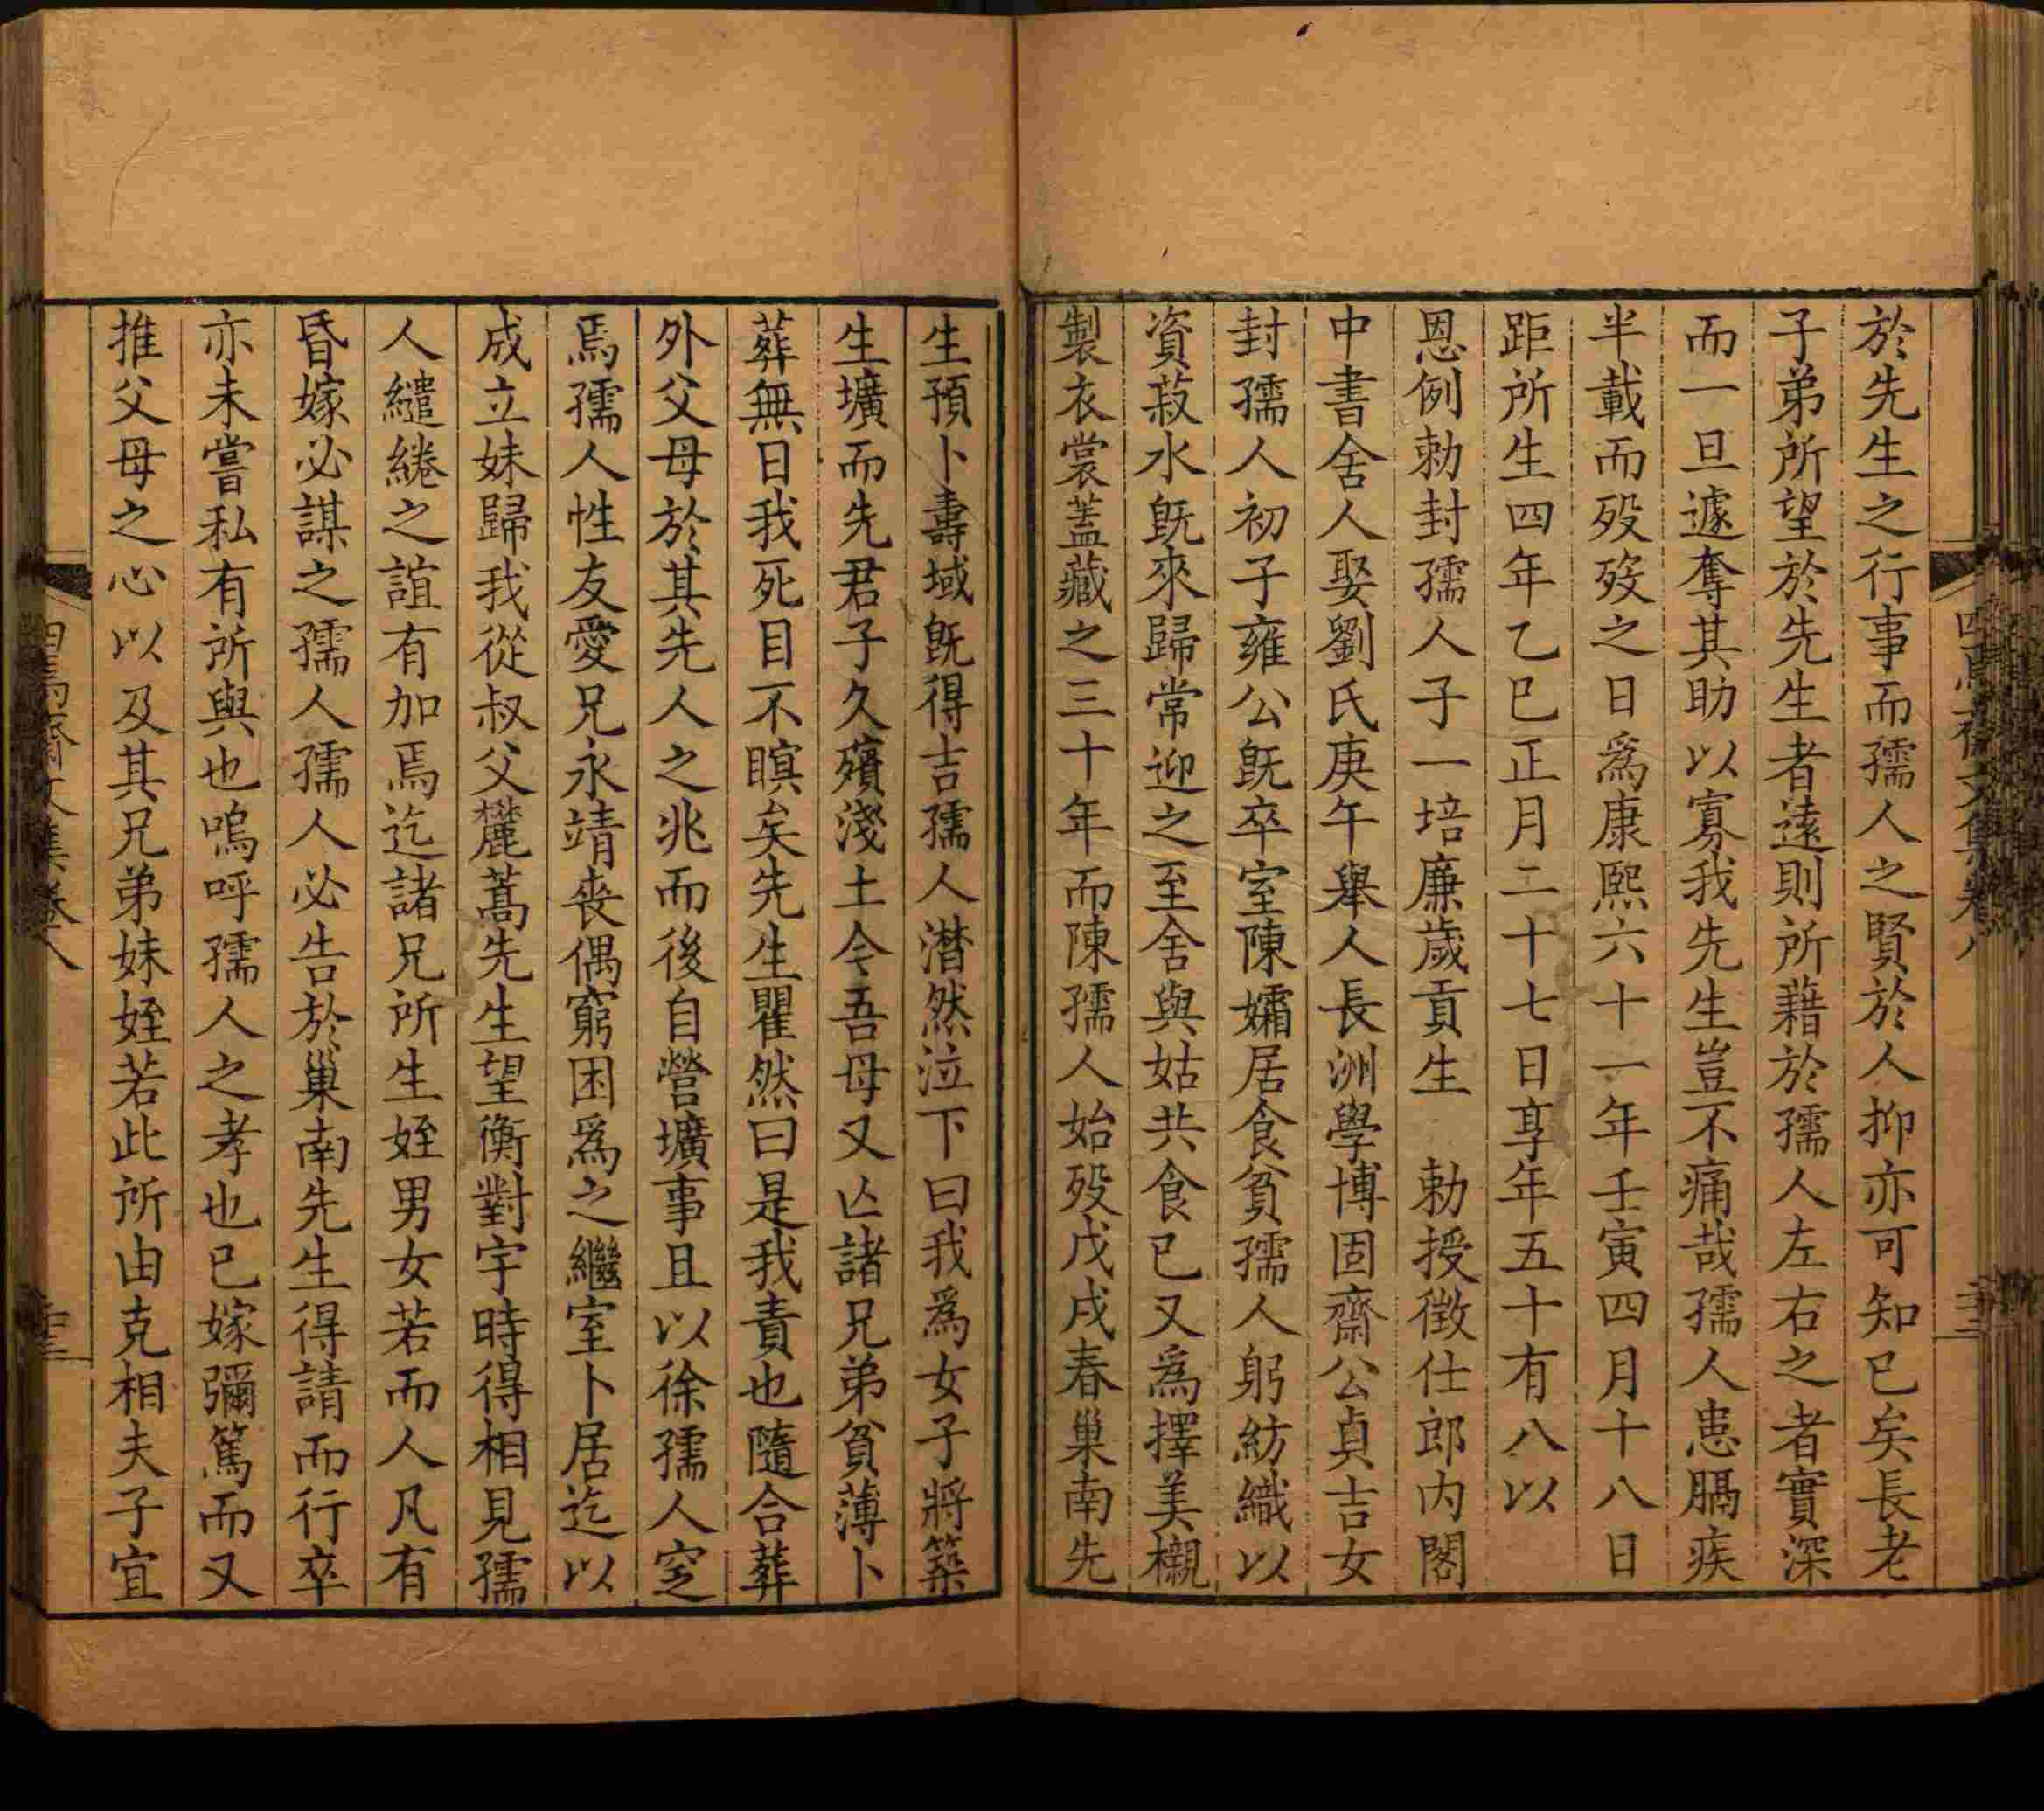 於先生之行事而孺人之賢於人抑亦可知已矣長老
子弟所望於先生者遠則所藉於孺人左右之者實深
而一旦遽奪其助以寡我先生豈不痛哉孺人患膈疾
半載而歿歿之日爲康熙六十一年壬寅四月十八日
距所生四年乙巳正月二十七日享年五十有八以
恩例勅封孺人子一培廉歲貢生　勅授徵仕郎内閣
中書舍人娶劉氏庚午舉人長洲學博固齋公貞吉女
封孺人初子雍公旣卒室陳孀居食貧孺人躬紡織以
資菽水旣來歸常迎之至舍與姑共食已又爲擇美櫬
製衣裳蓋藏之三十年而陳孺人始歿戊戌春巢南先
生預卜壽域旣得吉孺人潸然泣下曰我爲女子將築
生壙而先君子久殯淺土今吾母又亾諸兄弟貧薄卜
葬無日我死目不瞑矣先生瞿然曰是我責也隨合葬
外父母於其先人之兆而後自營壙事且以徐孺人窆
焉孺人性友愛兄永靖喪偶窮困爲之繼室卜居迄以
成立妹歸我從叔父麓蒿先生望衡對宇時得相見孺
人繾綣之誼有加焉迄諸兄所生姪男女若而人凡有
昏嫁必謀之孺人孺人必告於巢南先生得請而行卒
亦未嘗私有所與也嗚呼孺人之孝也已嫁彌篤而又
推父母之心以及其兄弟妹姪若此所由克相夫子宜